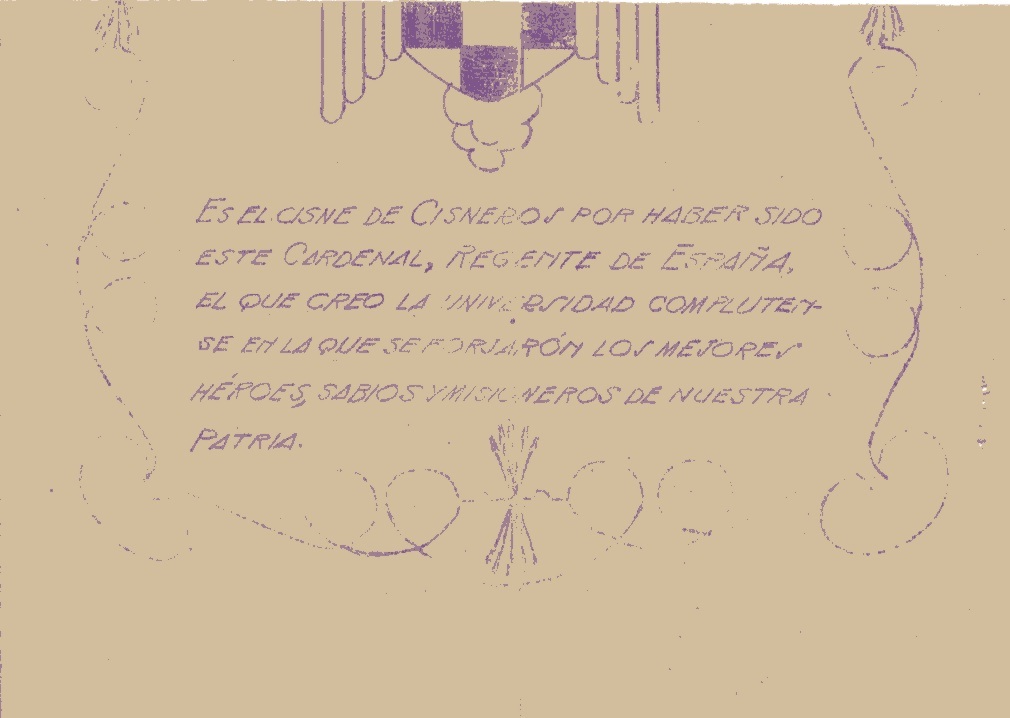 Es el cisne de Cisneros por haber sido
este Cardenal, Regente de España,
el que creo la Universidad Compluten-
se en la que se forjarón los mejores
héroes, sabios y misioneros de nuestra
Patria.